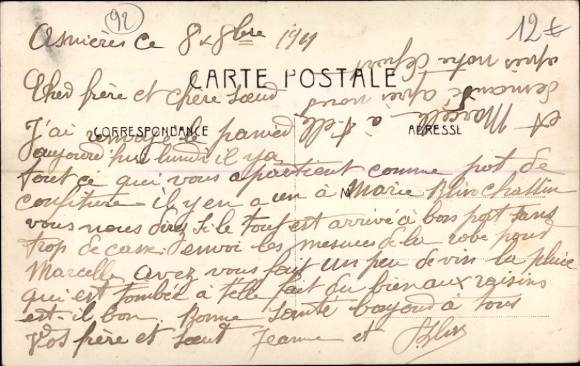 92
12€
Asnières ce 8 xbre 1911
CARTE POSTALE
Cher frère et chère sœur
CORRESPONDANCE
ADRESSE
J'ai envoyé le panier
aujourd'hui lundi il y a
tout ce qui vous apartient comme pot de
confiture il y en a un à Marie
vous nous direz si le tout est arrivé à bon port sans
trop de casse. envoi les mesures de la robe pour
Marcelle avez vous fait un peu de vin la pluie
qui est tombée a telle fait du bien aux raisins
est-il bon. Bonne santé bonjour à tous
Vos frère et sœur Jeanne et
et Marcelle a t-elle
demandé après nous
après notre départ